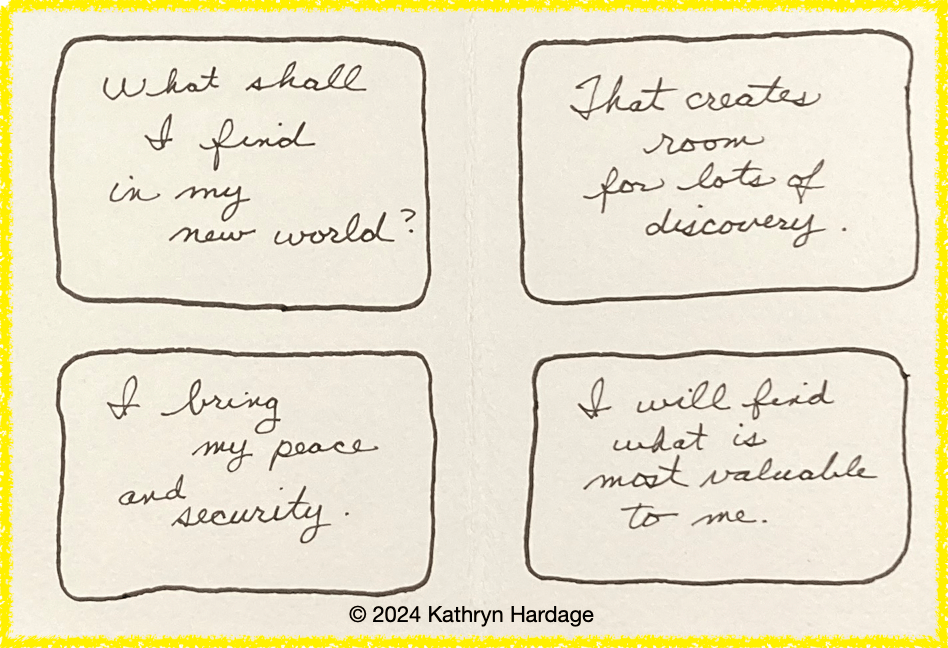 What shall
I find
in my
new world?
I bring
my peace
and
security.
That creates
room
for lots of
discovery.
I will find
what is
most valuable
to me.
© 2024 Kathryn Hardage